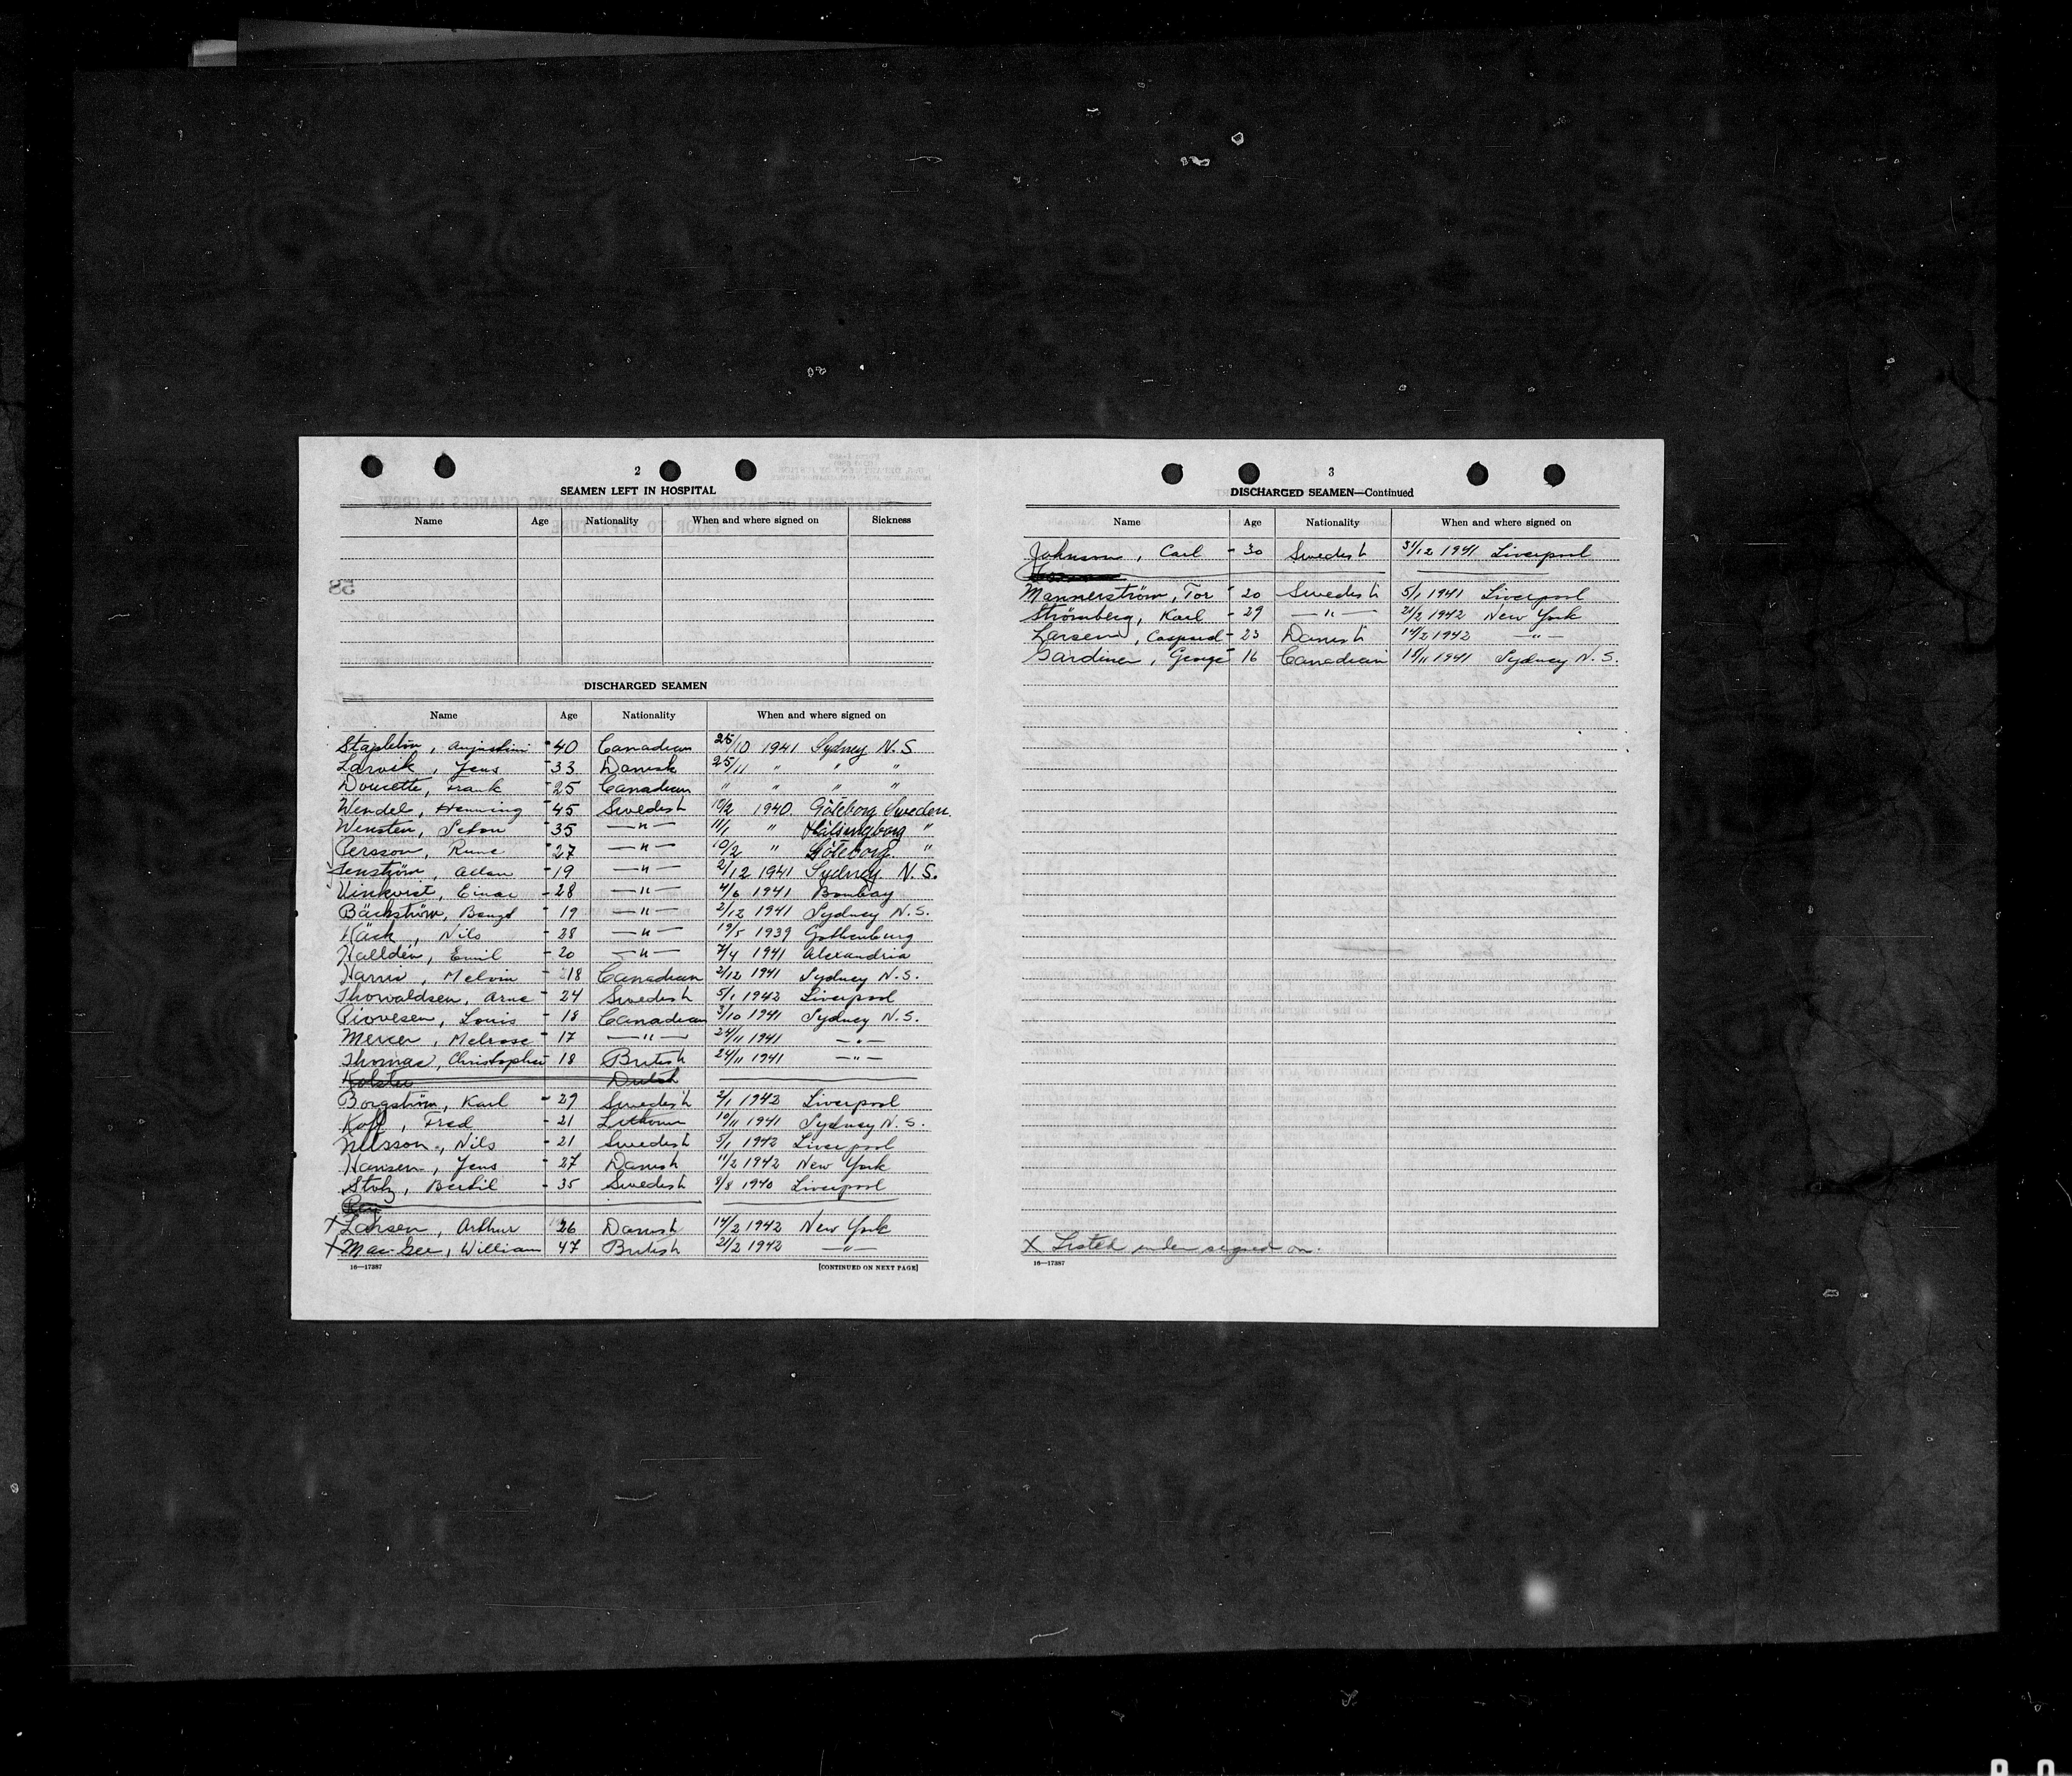 2
SEAMEN LEFT IN HOSPITAL
Name Age Nationality When and where signed on Sickness
DISCHARGED SEAMEN
Name Age Nationality When and where signed on
Stapleton, - 40 Canadian 25/10 1941 Sydney N.S
Larvik, Jens - 33 Danish 25/11 " " "
Doucette, Frank - 25 Canadian " " " "
Wendel, Henning - 45 Swedish 10/2 1940. Göteborg Sweden.
Wensten, - 35 —"— 11/1 " Hälsingborg "
Persson, Rune - 27 —"— 10/2 " Göteborg. "
Allan - 19 —"— 2/12 1941 Sydney. N.S.
Einar - 28 —"— 4/6 1941 Bombay
Bäckström, Bengt - 19 —"— 2/12 1941 Sydney N.S.
Käck, Nils - 28 —"— 19/5 1939 Gothenburg
Halldén, Emil - 20 —"— 7/4 1941 Alexandria
Harris, Melvin - 18 Canadian 2/12 1941 Sydney N.S.
Thorvaldsen, Arne - 24 Swedish 5/1 1942 Liverpool
Piovesen, Louis - 18 Canadian 3/10 1941 Sydney N.S.
Mercer, Melrose - 17 —"— 24/11 1941 —"—
Thomas, Christopher 18 British 24/11 1941 —"—
Dutch
Borgström, Karl - 29 Swedish 2/1 1942 Liverpool
Fred - 21 10/11 1941 Sydney N.S.
Nilsson, Nils - 21 Swedish 5/1 1942 Liverpool
Hansen, Jens - 27 Danish 11/2 1942 New York
Stolz, Bertil - 35 Swedish 8/8 1940 Liverpool
X Larsen, Arthur 26 Danish 14/2 1942 New York
X Mac-Gee, William 47 British 21/2 1942 —"—
16—17287 [CONTINUED ON NEXT PAGE]
3
DISCHARGED SEAMEN—Continued
Name Age Nationality When and where signed on
Johnson, Carl - 30 Swedish 31/12 1941 Liverpool
Mannerström, Tor - 20 Swedish 5/1 1941 Liverpool
Strömberg, Karl - 29 —"— 21/2 1942 New York
Larsen, - 23 Danish 14/2 1942 —"—
Gardiner, George - 16 Canadian 18/11 1941 Sydney N.S.
X Listed under signed on.
16—17287